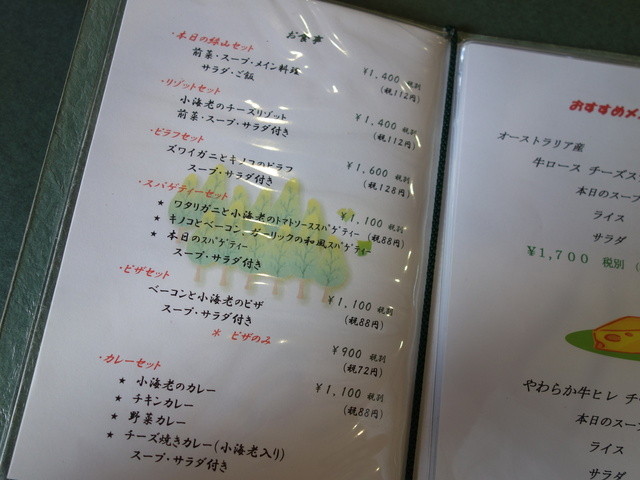 お食事
・本日の緑山セット
前菜・スープ・メイン料理
サラダ・ご飯
¥1,400 税別
(税112円)
・リゾットセット
小海老のチーズリゾット
前菜・スープ・サラダ付き
¥1,400 税別
(税112円)
・ピラフセット
ズワイガニとキノコのピラフ
スープ・サラダ付き
¥1,600 税別
(税128円)
・スパゲティーセット
¥1,100 税別
(税88円)
★ ワタリガニと小海老のトマトソーススパゲティー
★ キノコとベーコン・ガーリックの和風スパゲティー
★ 本日のスパゲティー
スープ・サラダ付き
・ピザセット
ベーコンと小海老のピザ
スープ・サラダ付き
¥1,100 税別
(税88円)
※ ピザのみ
¥900 税別
(税72円)
・カレーセット
¥1,100 税別
(税88円)
★ 小海老のカレー
★ チキンカレー
★ 野菜カレー
★ チーズ焼きカレー(小海老入り)
スープ・サラダ付き
おすすめメ
オーストラリア産
牛ロース チーズス
本日のスープ
ライス
サラダ
¥1,700 税別 (
やわらか牛ヒレ チ
本日のスープ
ライス
サラダ